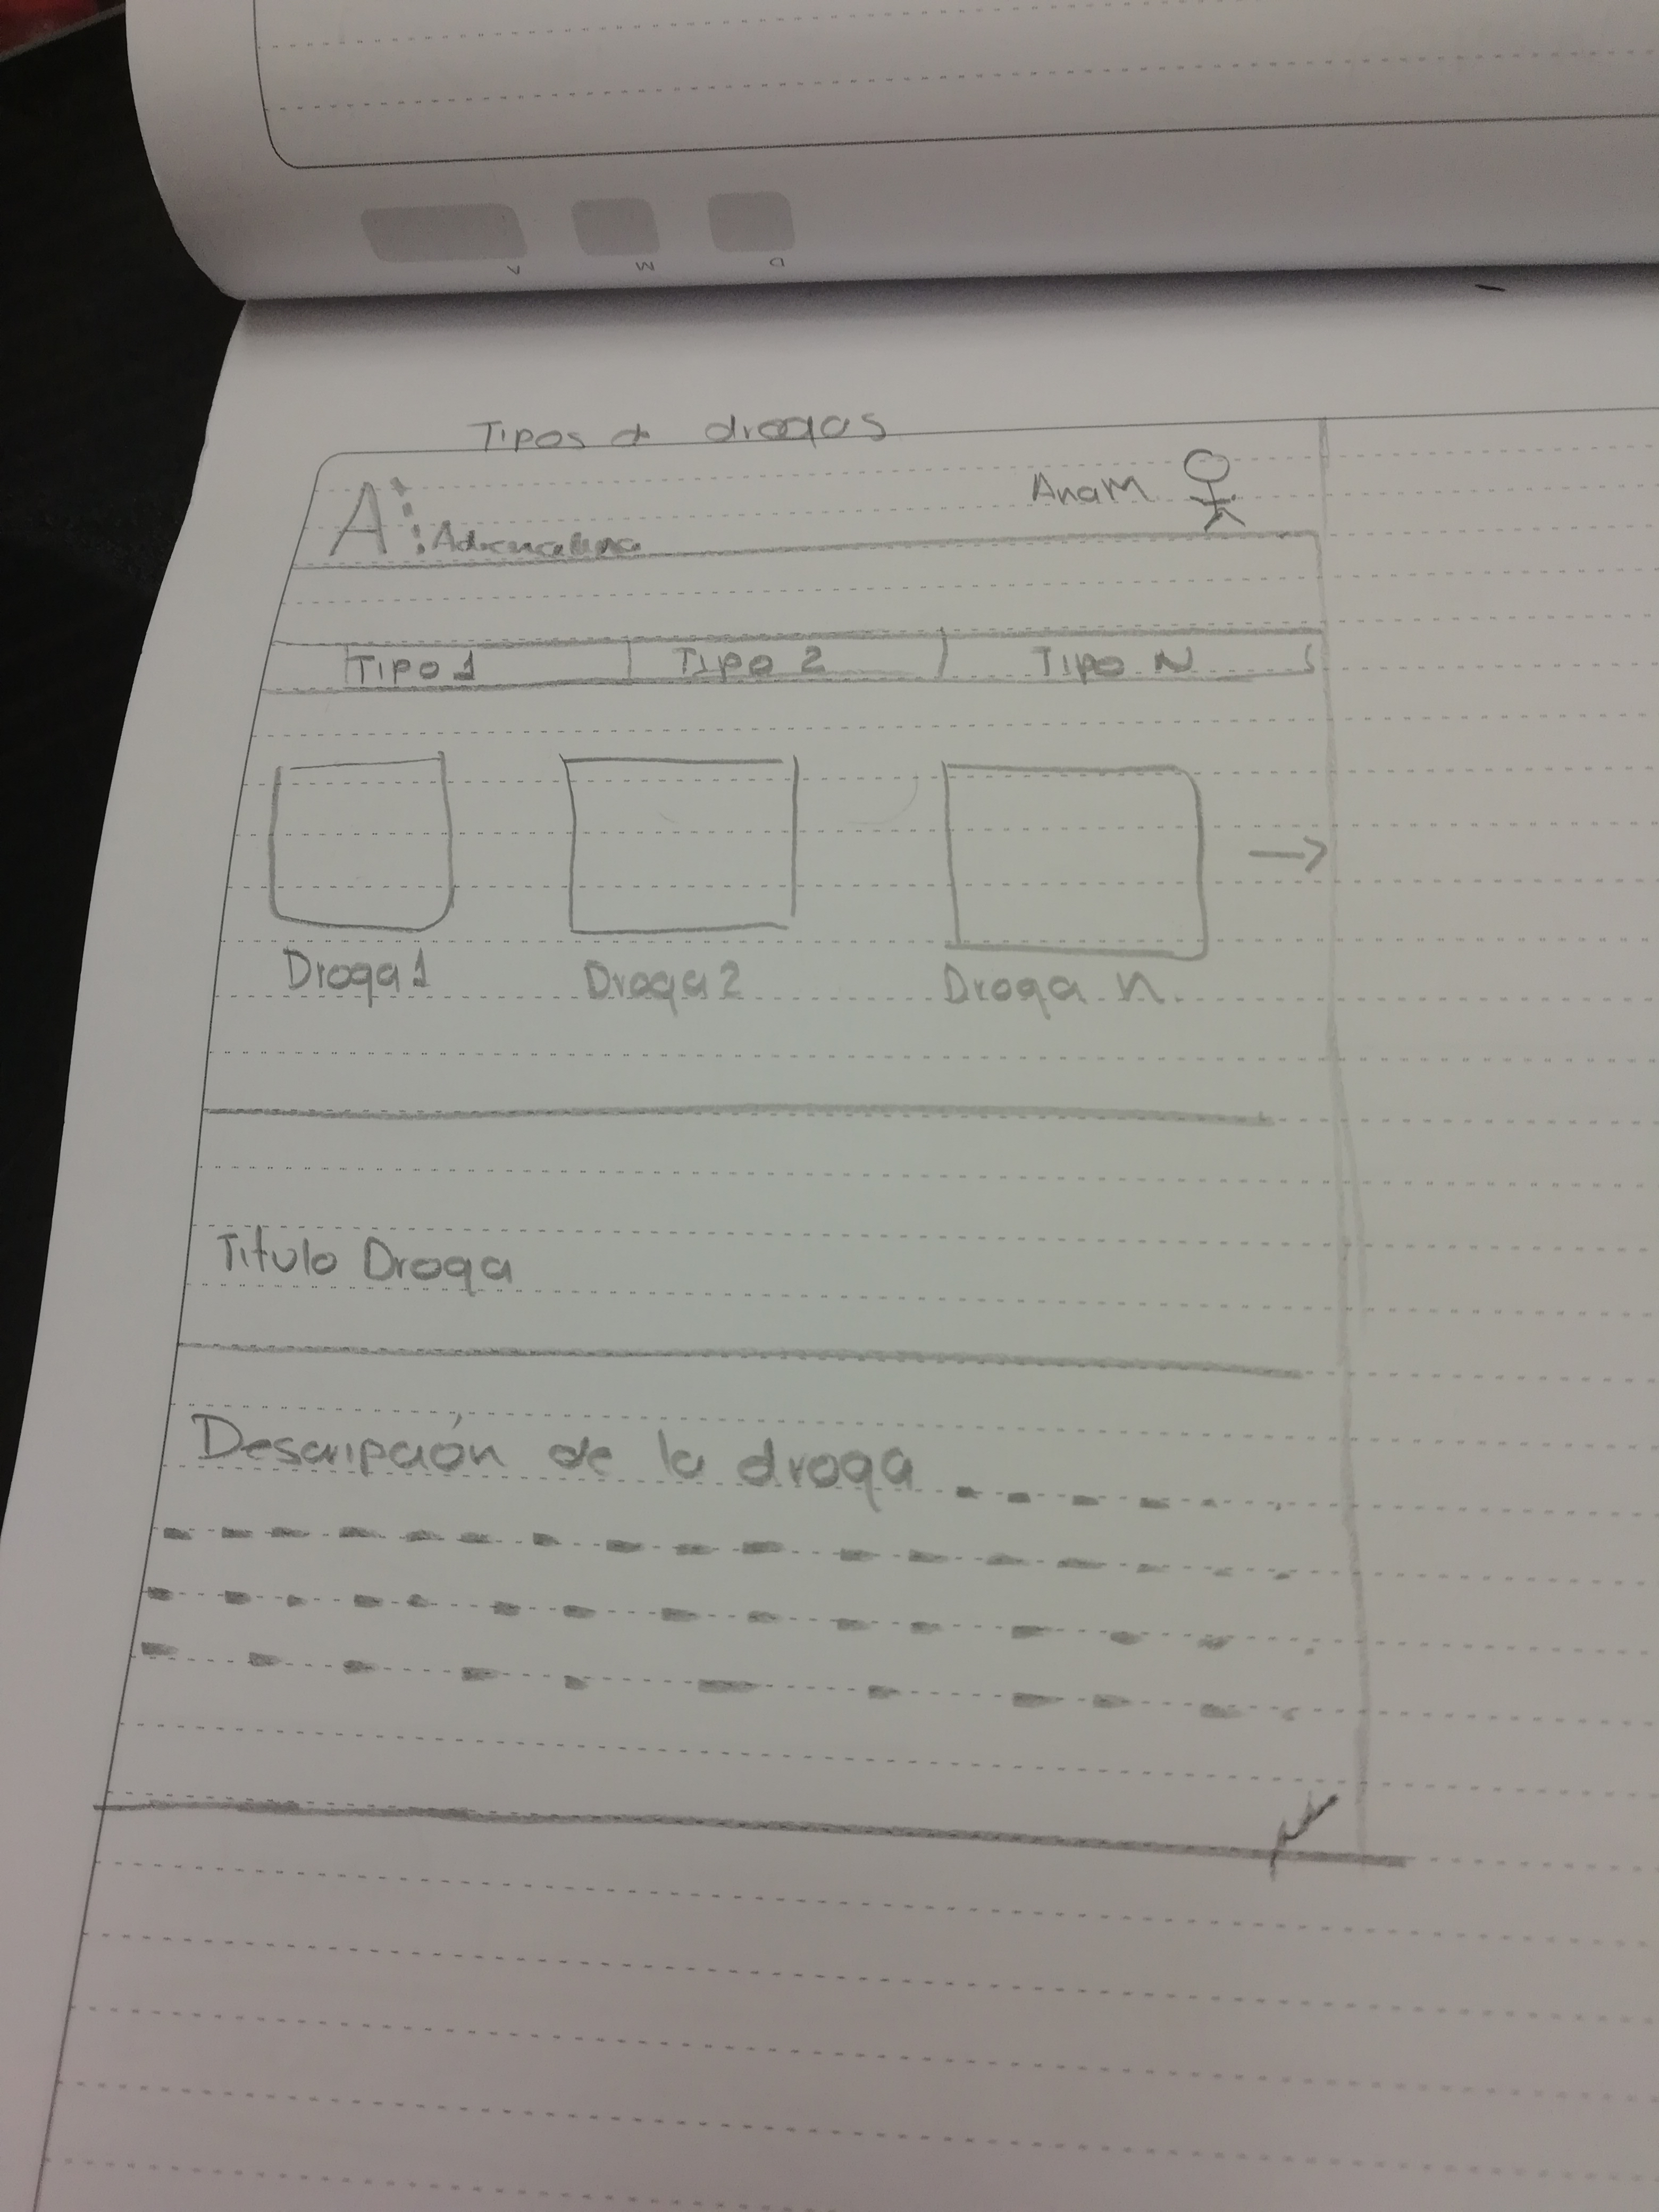 A M D
Tipos de drogas
A+: Adrenalina AnaM
Tipo 1 Tipo 2 Tipo N
Droga 1 Droga 2 Droga n
Titulo Droga
Descripción de la droga